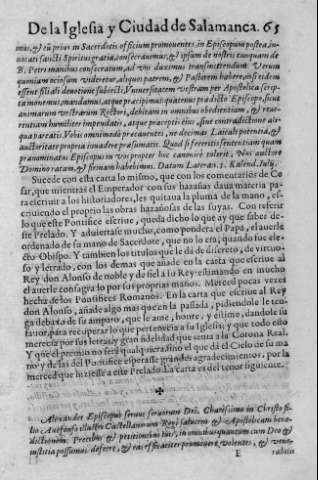 De la Iglesia y Ciudad de Salamanca. 65
mus, & eū prius in Sacerdotis officium promouentes, in Episcopum postea, in-
uocati sancti Spiritus gratia, consecrauemus, & ipsum de nostris tanquam de
B. Petri manibus consecratum, ad vos duximus transmittendum Verum
quoniam ociosum videretur, aliquos patrem, & Pastorem habere, nisi eidem
essent filiali deuotione subiecti, Vniuersitatem vestram per Apostolica scrip-
ta monemus, mandamus, atque præcipimus quatenus prædicto Episcopo, sicut
animarum vestrarum Rectori, debitam in omnibus obedientiam, & reue-
rentiam humiliter impendatis, atque præceptis eius, sine contradictione ali-
qua pareatis. Vobis omnimodè præcauentes, ne decimas Laicali potentia, &
auctoritate propria inuadere præsumatis. Quod si feceritis sententiam quam
prænominatus Episcopus in vos propter hoc canonicè tulerit, Nos auctore
Domino ratam, & firmam habebimus. Datum Laterani. 3. Kalend. Iulij.
Sucede con esta carta lo mismo, que con los comentarios de Ce
sar, que mientras el Emperador con sus hazañas daua materia pa-
ra escriuir a los historiadores, les quitaua la pluma de la mano, es-
criuiendo el proprio las obras hazañosas de las suyas. Con referir
lo que este Pontifice escriue, queda dicho lo que ay que saber de-
ste Prelado. Y aduiertase mucho, como pondera el Papa, el auerle
ordenado de su mano de Sacerdote, que no lo era, quando fue ele-
cto Obispo. Y tambien los titulos que le dà de discreto, de virtuo-
so y letrado, con los demas que añade en la carta que escriue al
Rey don Alonso de noble y de fiel a su Rey estimando en mucho
el auerle consagrado por sus proprias manos. Merced pocas vezes
hecha de los Pontifices Romanos. En la carta que escriue al Rey
don Alonso, añade algo mas que en la passada, pidiendole le ten-
ga debaxo de su amparo, que le ame, honre, y estime, dandole su
fauor, para recuperar lo que pertenecia a su Iglesia; y que todo esto
merecia por sus letras y gran fidelidad que tenia a la Corona Real.
Y que el premio no serà qualquiera, sino el que dà el Cielo de su ma
no y de las del Pontifice esperasse grandes agradecimientos, por la
merced que hiziesse a este Prelado. La carta es del tenor siguiente.
Alexander Episcopus seruus seruorum Dei. Charissimo in Christo fi-
lio Aldefonso illustri Castellanorum Regi salutem & Apostolicam bene-
dictionem. Precibus & petitionibus tuis, in omnibus quantum cum Deo &
iustitia possumus deferre, & eas efficaciter promouere volentes, & vene-
E rabilem